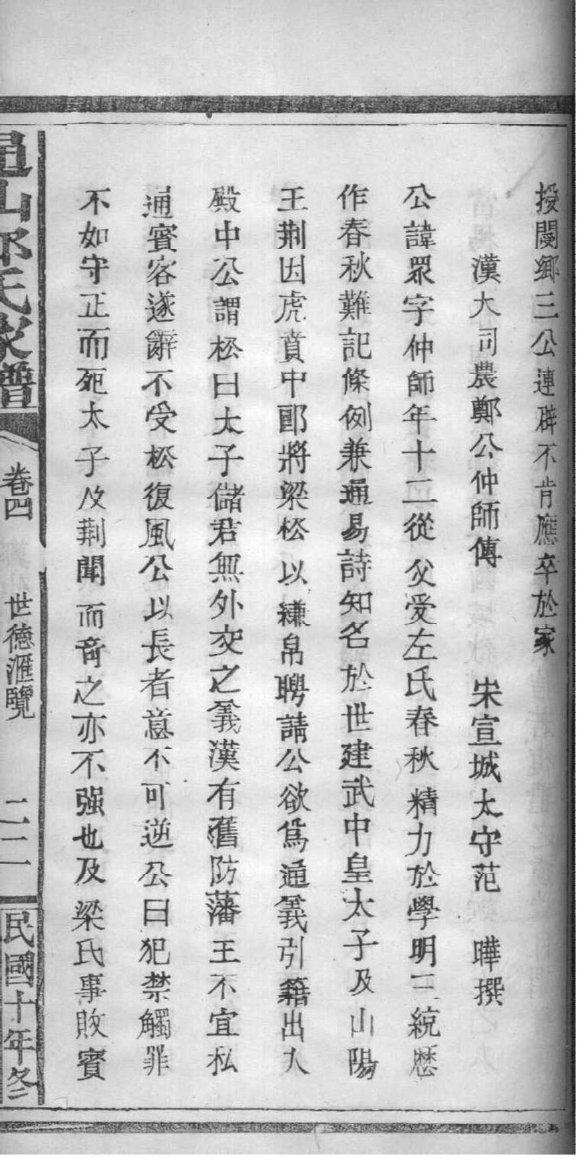 授閿鄉三公連辟不肯應卒於家
漢大司農鄭公仲師傳 宋宣城太守范 曄撰
公諱眾字仲師年十二從父受左氏春秋精力於學明三統歷
作春秋難記條例兼通易詩知名於世建武中皇太子及山陽
王荆因虎賁中郎將梁松以縑帛聘請公欲爲通義引籍出入
殿中公謂松曰太子儲君無外交之義漢有舊防藩王不宜私
通賓客遂辭不受松復風公以長者意不可逆公曰犯禁觸罪
不如守正而死太子及荆聞而奇之亦不强也及梁氏事敗賓
鄭氏家譜 卷四 世德滙覽 二二 民國十年冬